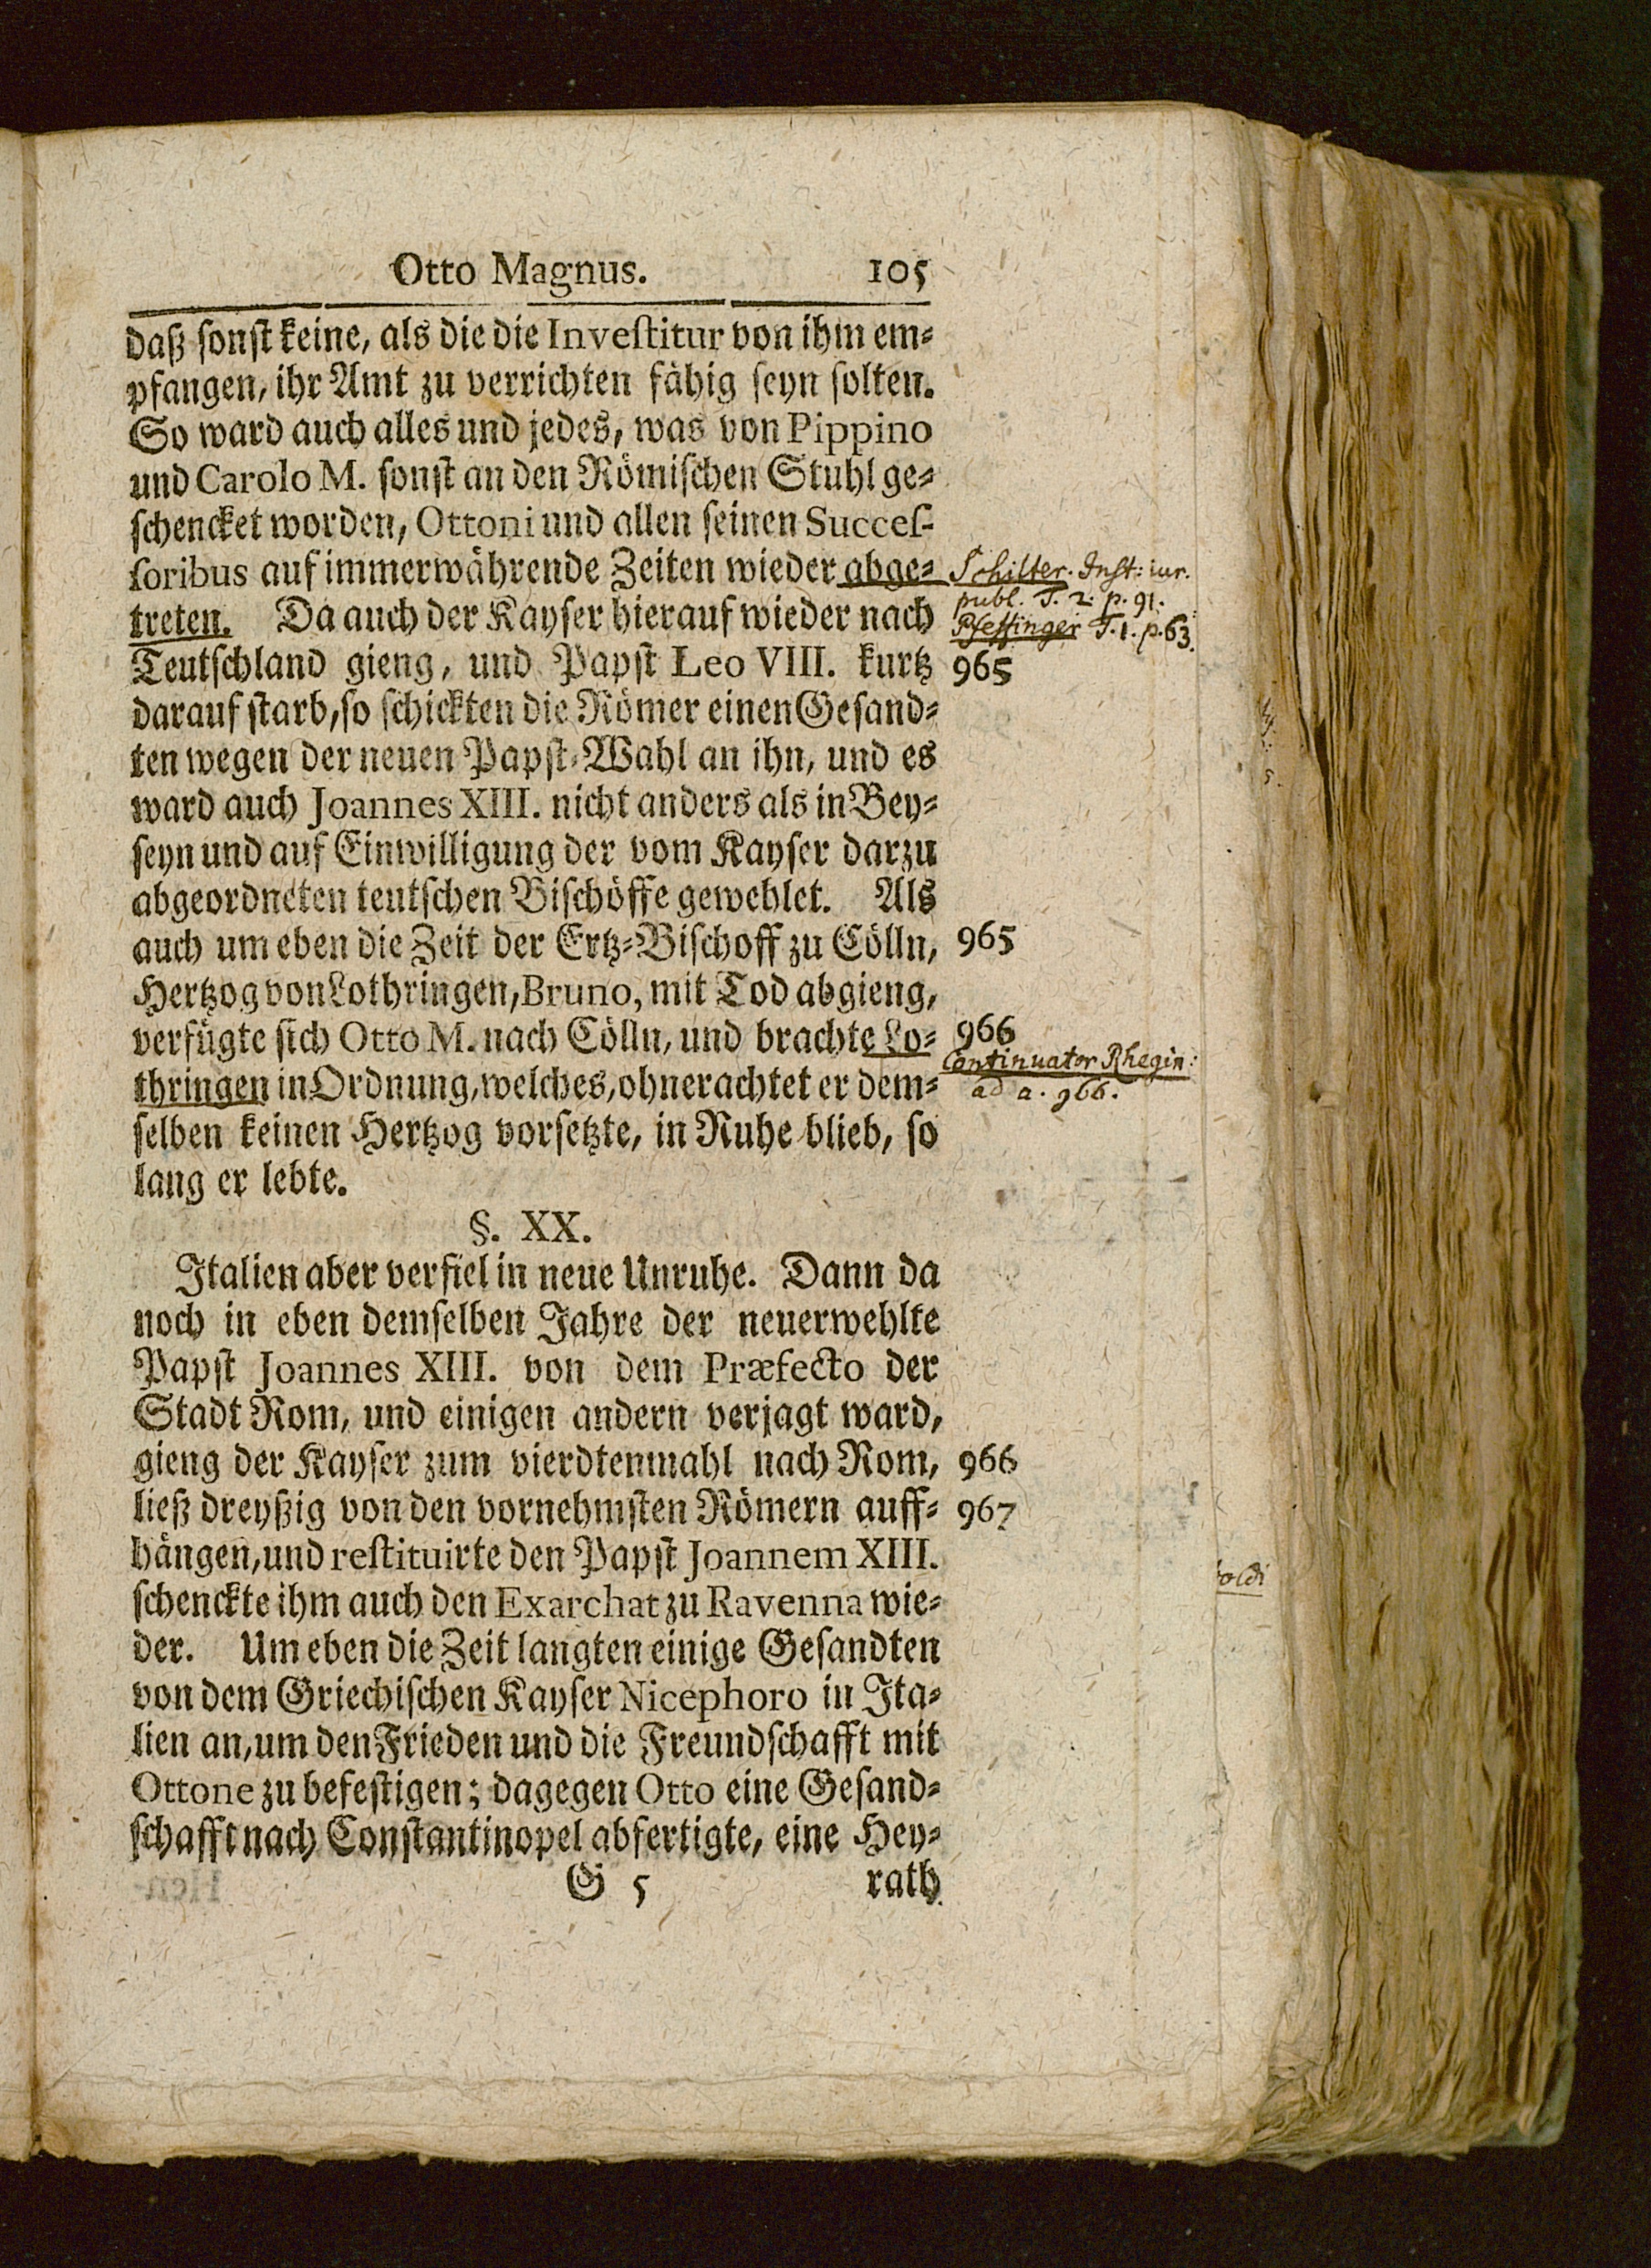 Otto Magnus. 105
daß sonst keine, als die die Investitur von ihm em-
pfangen, ihr Amt zu verrichten fähig seyn solten.
So ward auch alles und jedes, was von Pippino
und Carolo M. sonst an den Römischen Stuhl ge-
schencket worden, Ottoni und allen seinen Succes-
soribus auf immerwährende Zeiten wieder abge-
Schilter. Inst: iur.
publ. T. 2. p. 91.
treten. Da auch der Kayser hierauf wieder nach
Pfeffinger T. 1. p. 63.
Teutschland gieng, und Papst Leo VIII. kurtz 965
darauf starb, so schickten die Römer einen Gesand-
ten wegen der neuen Papst-Wahl an ihn, und es
ward auch Joannes XIII. nicht anders als in Bey-
seyn und auf Einwilligung der vom Kayser darzu
abgeordneten teutschen Bischöffe gewehlet. Als
auch um eben die Zeit der Ertz-Bischoff zu Cölln, 965
Hertzog von Lothringen, Bruno, mit Tod abgieng,
verfügte sich Otto M. nach Cölln, und brachte Lo- 966
Continuator Rhegin:
thringen in Ordnung, welches, ohnerachtet er dem-
ad a. 966.
selben keinen Hertzog vorsetzte, in Ruhe blieb, so
lang er lebte.
§. XX.
Italien aber verfiel in neue Unruhe. Dann da
noch in eben demselben Jahre der neuerwehlte
Papst Joannes XIII. von dem Præfecto der
Stadt Rom, und einigen andern verjagt ward,
gieng der Kayser zum vierdtenmahl nach Rom, 966
ließ dreyßig von den vornehmsten Römern auff- 967
hängen, und restituirte den Papst Joannem XIII.
schenckte ihm auch den Exarchat zu Ravenna wie-
der. Um eben die Zeit langten einige Gesandten
von dem Griechischen Kayser Nicephoro in Ita-
lien an, um den Frieden und die Freundschafft mit
Ottone zu befestigen; dagegen Otto eine Gesand-
schafft nach Constantinopel abfertigte, eine Hey-
G 5 rath